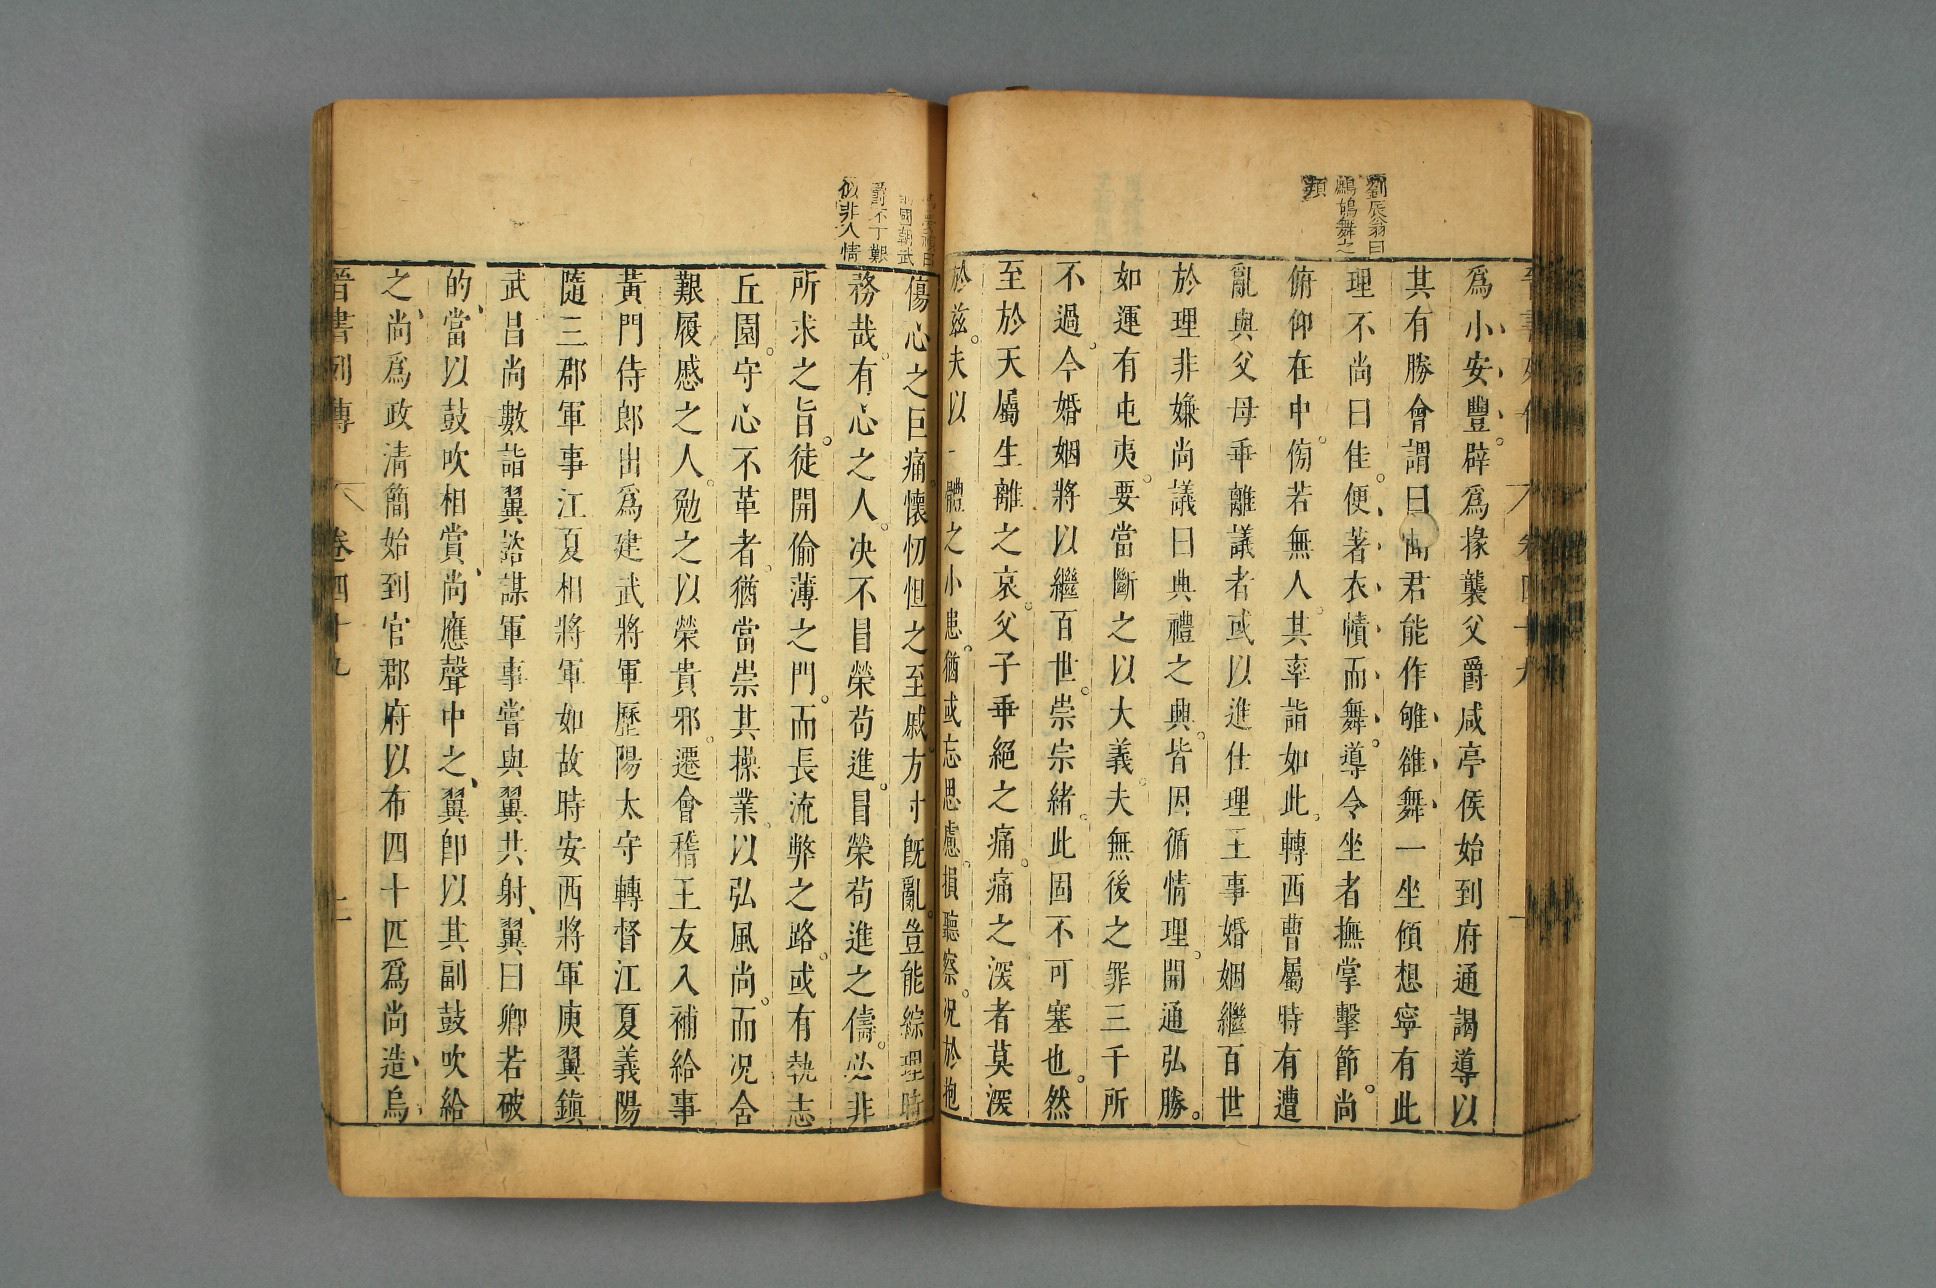 劉辰翁曰
鸜鵒舞之
類
爲小安豐辟爲掾襲父爵咸亭侯始到府通謁導以
其有勝會謂曰聞君能作雊𨿜舞一坐傾想寧有此
理不尚曰佳便著衣幘而舞導令坐者撫掌擊節尚
俯仰在中傍若無人其率詣如此轉西曹屬時有遭
亂與父母乖離議者或以進仕理王事婚姻繼百世
於理非嫌尚議曰典禮之興皆因循情理開通弘勝
如運有屯夷要當斷之以大義夫無後之罪三千所
不過今婚姻將以繼百世崇宗緒此固不可塞也然
至於天屬生離之哀父子乖絕之痛痛之深者莫深
於兹夫以一體之小患猶或忘思慮損聽察况於抱
國朝武
爵不丁艱
似非人情
傷心之巨痛懷忉怛之至戚方寸旣亂豈能綜理時
務哉有心之人决不冒榮茍進冒榮茍進之儔必非
所求之旨徒開偷薄之門而長流弊之路或有執志
丘園守心不革者猶當崇其操業以弘風尚而况含
艱履慼之人勉之以榮貴邪遷會稽王友入補給事
黃門侍郎出爲建武將軍歷陽太守轉督江夏義陽
隨三郡軍事江夏相將軍如故時安西將軍庾翼鎮
武昌尚數詣翼諮謀軍事嘗與翼共射翼曰卿若破
的當以鼓吹相賞尚應聲中之翼卽以其副鼓吹給
之尚爲政清簡始到官郡府以布四十匹爲尚造烏
晉書列傳 卷四十九 二